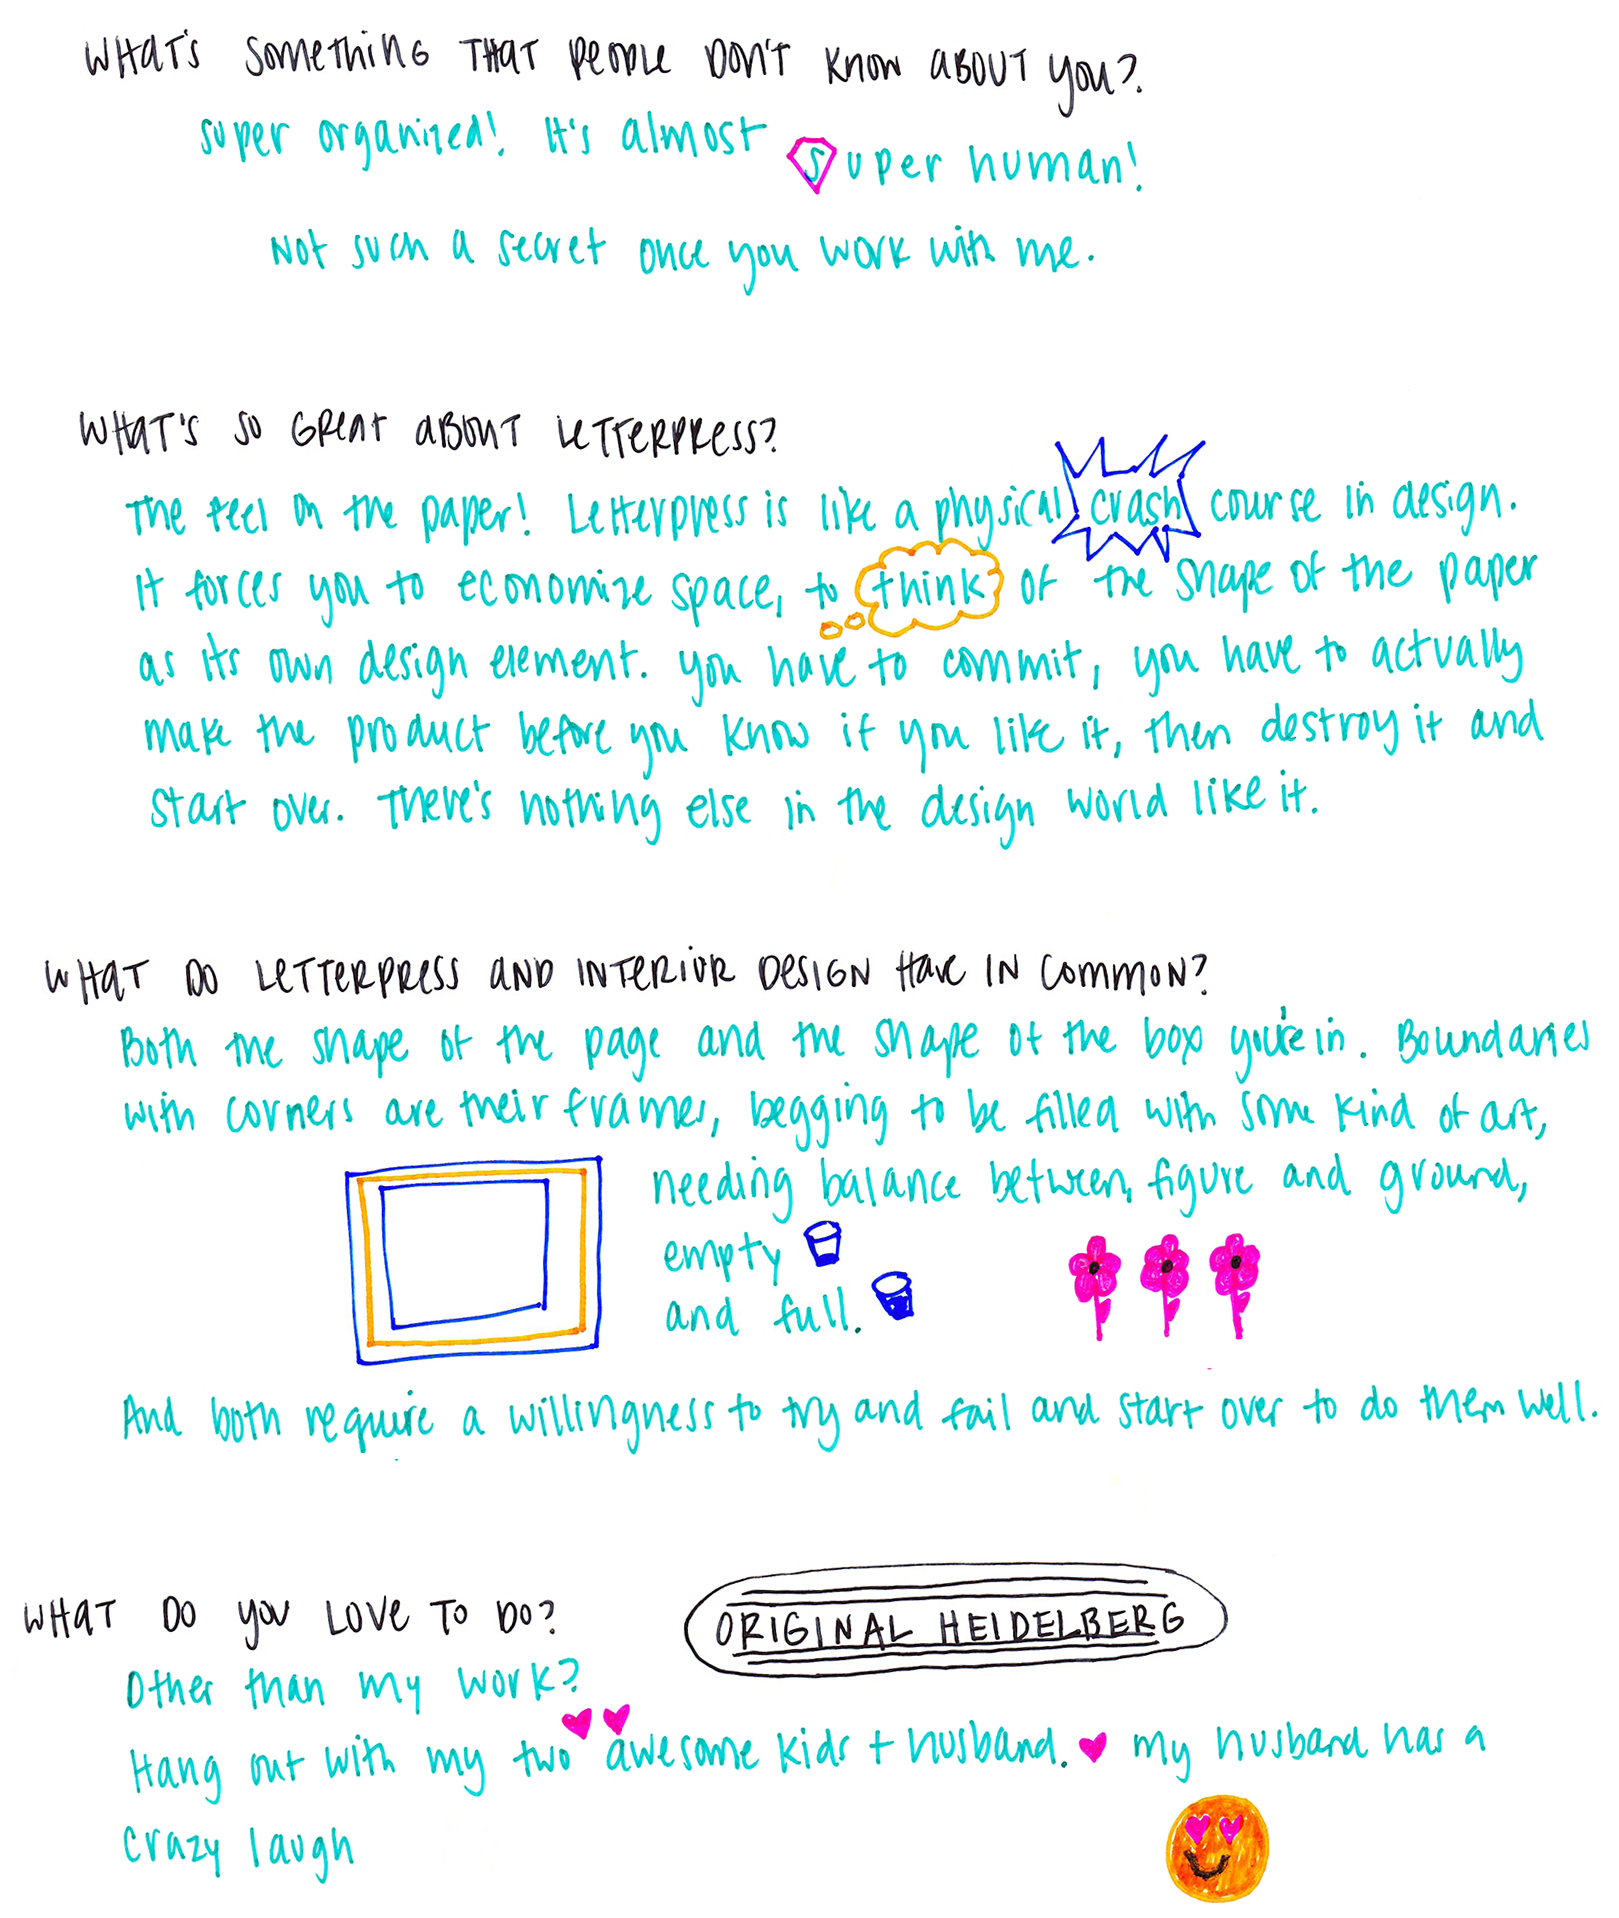 WHAT'S SOMETHING THAT PEOPLE DON'T KNOW ABOUT YOU?
super organized! It's almost super human!
Not such a secret once you work with me.
WHAT'S SO GREAT ABOUT LETTERPRESS?
The feel on the paper! Letterpress is like a physical crash course in design.
It forces you to economize space, to think of the shape of the paper
as its own design element. you have to commit, you have to actually
make the product before you know if you like it, then destroy it and
start over. There's nothing else in the design world like it.
WHAT DO LETTERPRESS AND INTERIOR DESIGN HAVE IN COMMON?
Both the shape of the page and the shape of the box you're in. Boundaries
with corners are their frames, begging to be filled with some kind of art,
needing balance between figure and ground,
empty
and full.
And both require a willingness to try and fail and start over to do them well.
WHAT DO YOU LOVE TO DO?
ORIGINAL HEIDELBERG
Other than my work?
Hang out with my two awesome kids + husband. my husband has a
crazy laugh